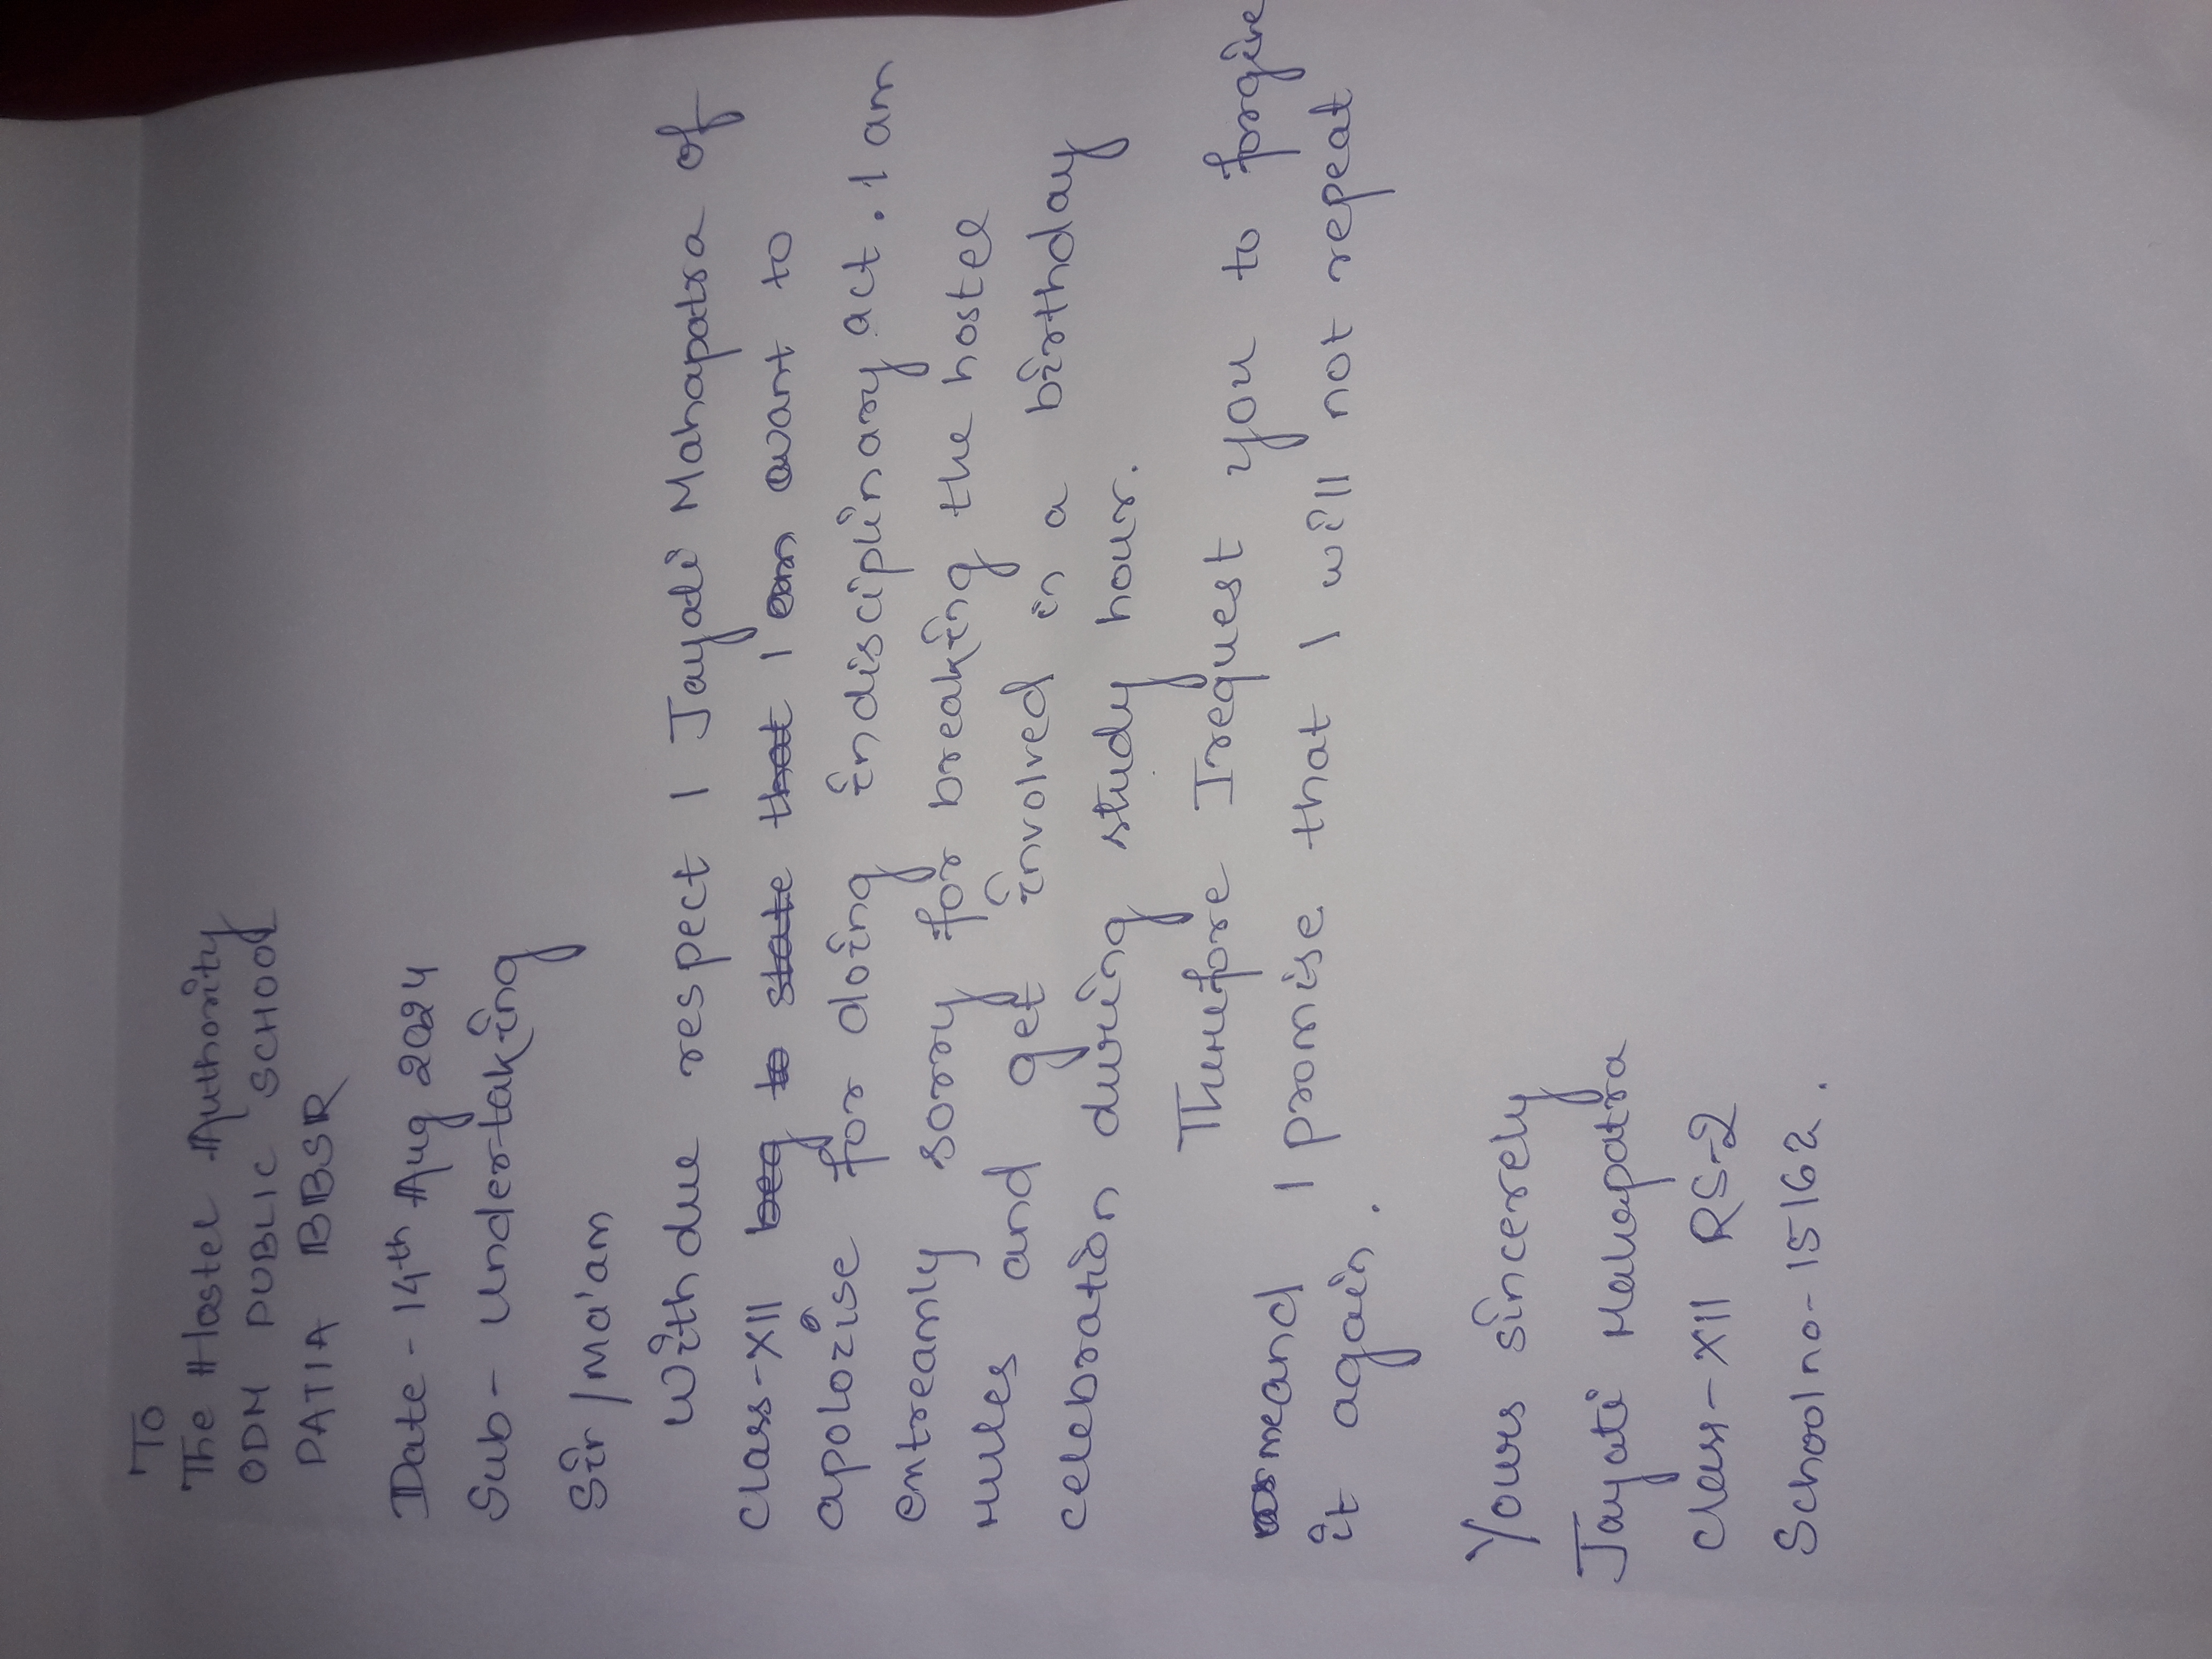 To
The Hostel Authority
ODM PUBLIC SCHOOL
PATIA BBSR
Date - 14th Aug 2024
Sub - Undertaking
Sir/Ma'am
With due respect I Jayati Mahapatra of
class-XII beg to state that I am want to
apolozise for doing indisciplinary act. I am
entreamly sorry for breaking the hostel
rules and get involved in a birthday
celebration during study hour.
Therefore I request you to forgive
me and I promise that I will not repeat
it again.
Yours sincerely
Jayati Mahapatra
Class-XII RS-2
School no - 15162.